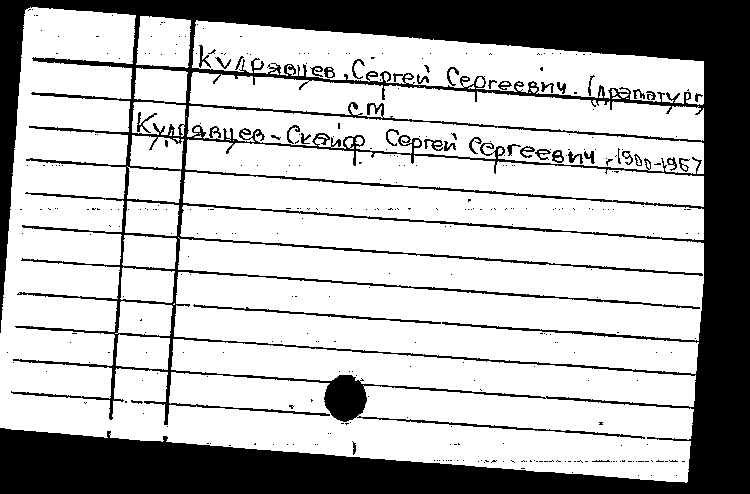 Кудрявцев, Сергей Сергеевич. (драматург
см.
Кудрявцев-Скайф, Сергей Сергеевич, 1900-1967